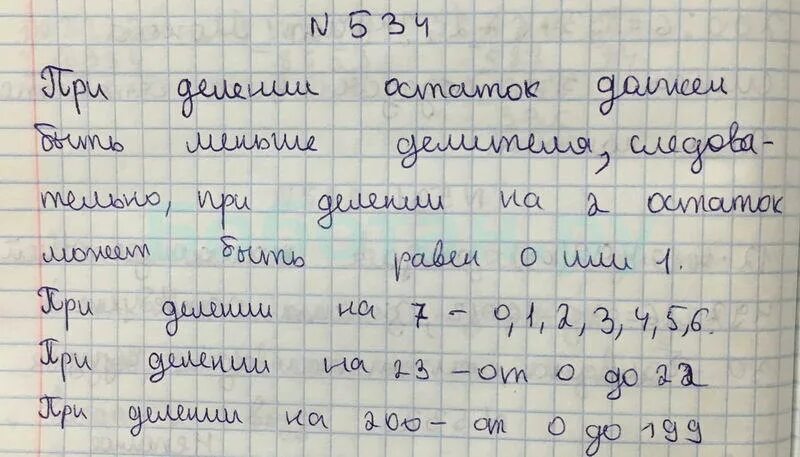 N 534
При делении остаток должен
быть меньше делителя, следова-
тельно, при делении на 2 остаток
может быть равен 0 или 1.
При делении на 7 - 0, 1, 2, 3, 4, 5, 6.
При делении на 23 - от 0 до 22
При делении на 200 - от 0 до 199